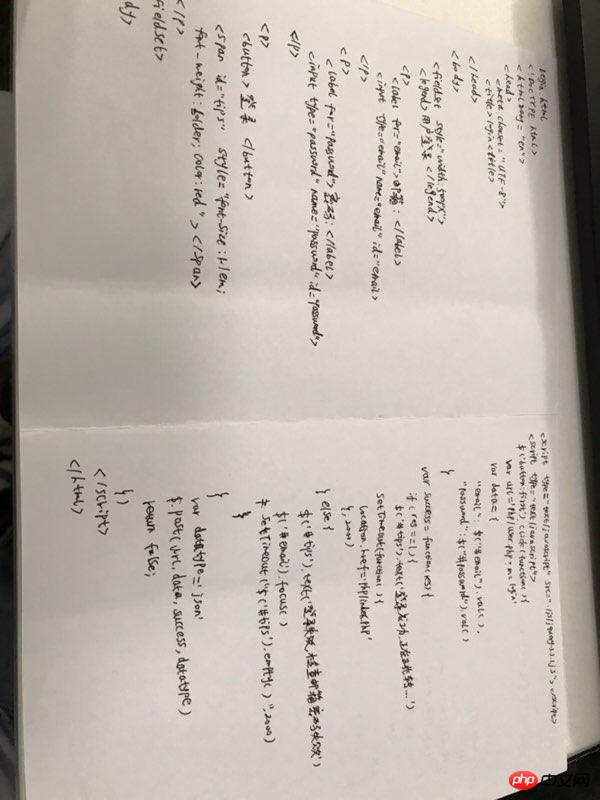 login html
<!DOCTYPE html>
<html lang="en">
<head>
<meta charset="UTF-8">
<title>login<title>
</head>
<body>
<fieldset style="width:500px">
<legend>用户登录</legend>
<p>
<label for="email">邮箱:</label>
<input type="email" name="email" id="email">
</p>
<p>
<label for="password">密码:</label>
<input type="password" name="password" id="password">
</p>
<p>
<button>登录</button>
<span id="tips" style="font-size:1.1em;
font-weight:bolder; color:red"></span>
</p>
fieldset>
dy>
<script type="text/javascript" src="
<script type="text/javascript">
$('button:first').click(function(){
var url='
var data={
"email": $("#email").val(),
"password": $("#password").val()
}
var success=function(res){
if(res==1){
$('#tips').text('登录成功,正在跳转...')
setTimeout(function(){
location.href='php/index.php'
},2000)
} else {
$('#tips').text('登录失败,检查邮箱密码
$('#email').focus()
setTimeout("$('#tips').empty()",2000)
}
}
var datatype='json'
$.post(url, data, success, datatype)
return false;
})
</script>
</html>
php中文网